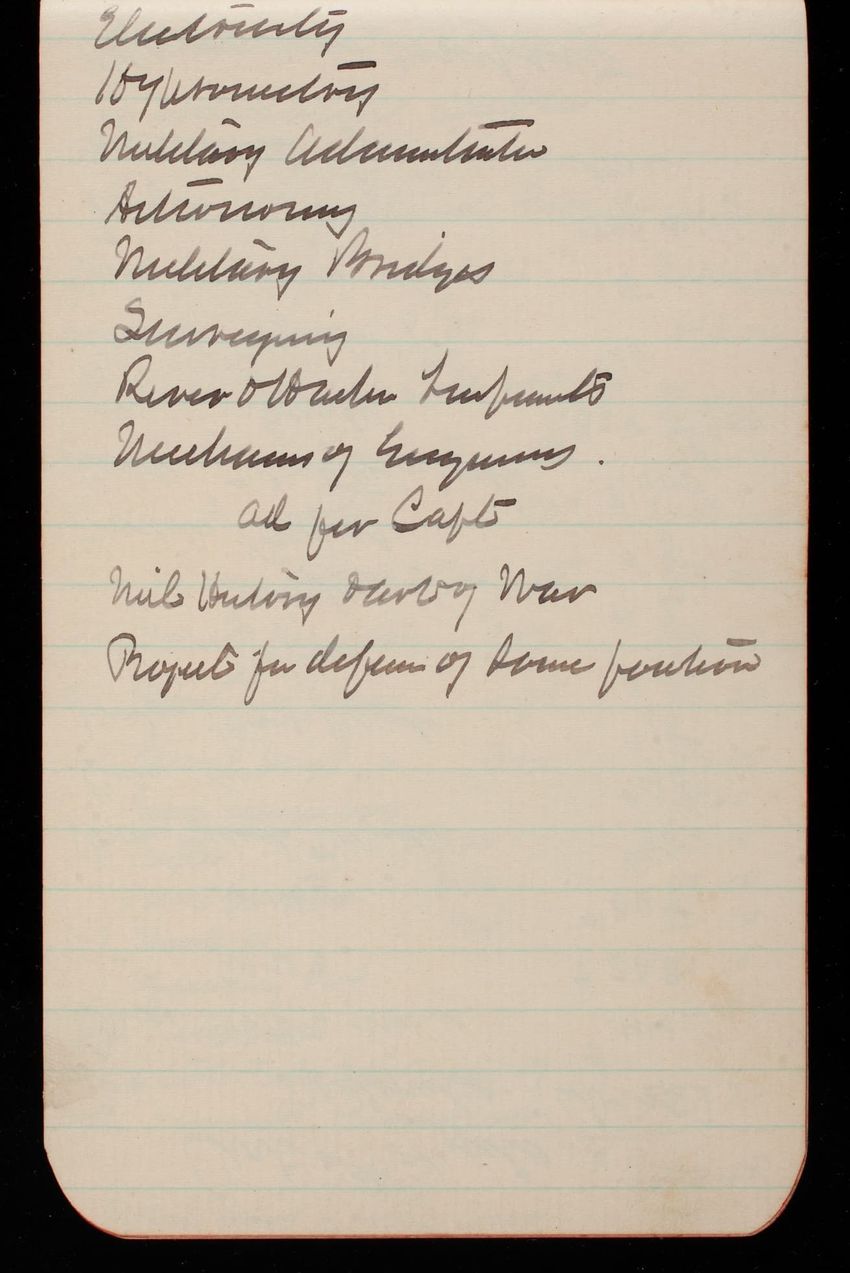 Electricity
Hypsometry
Military Administration
Astronomy
Military Bridges
Surveying
River & Harbor Imprvmts
Mechanics of Engineering.
Ad for Capt
Mil History & Art of War
Project for defense of some position